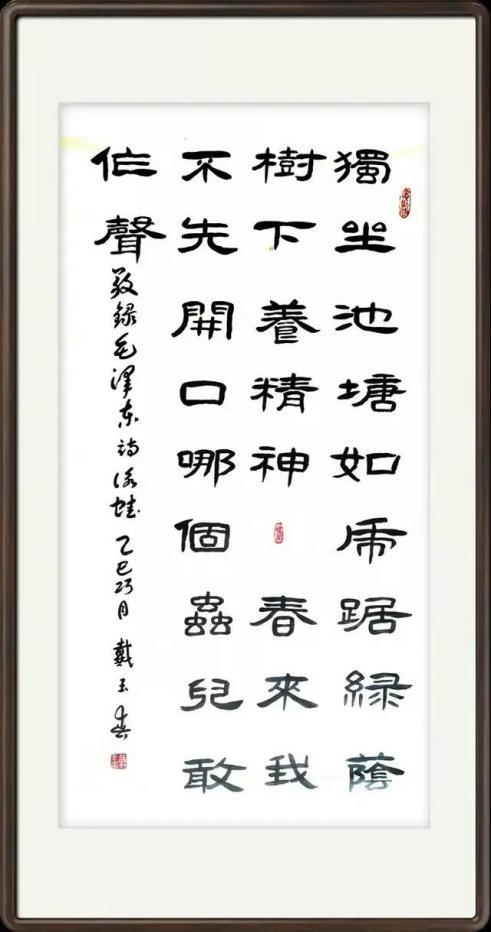 獨坐池塘如虎踞緑蔭
樹下養精神 春來我
不先開口哪個蟲兒敢
作聲
敬録毛澤东诗咏蛙 乙巳巧月 戴玉春